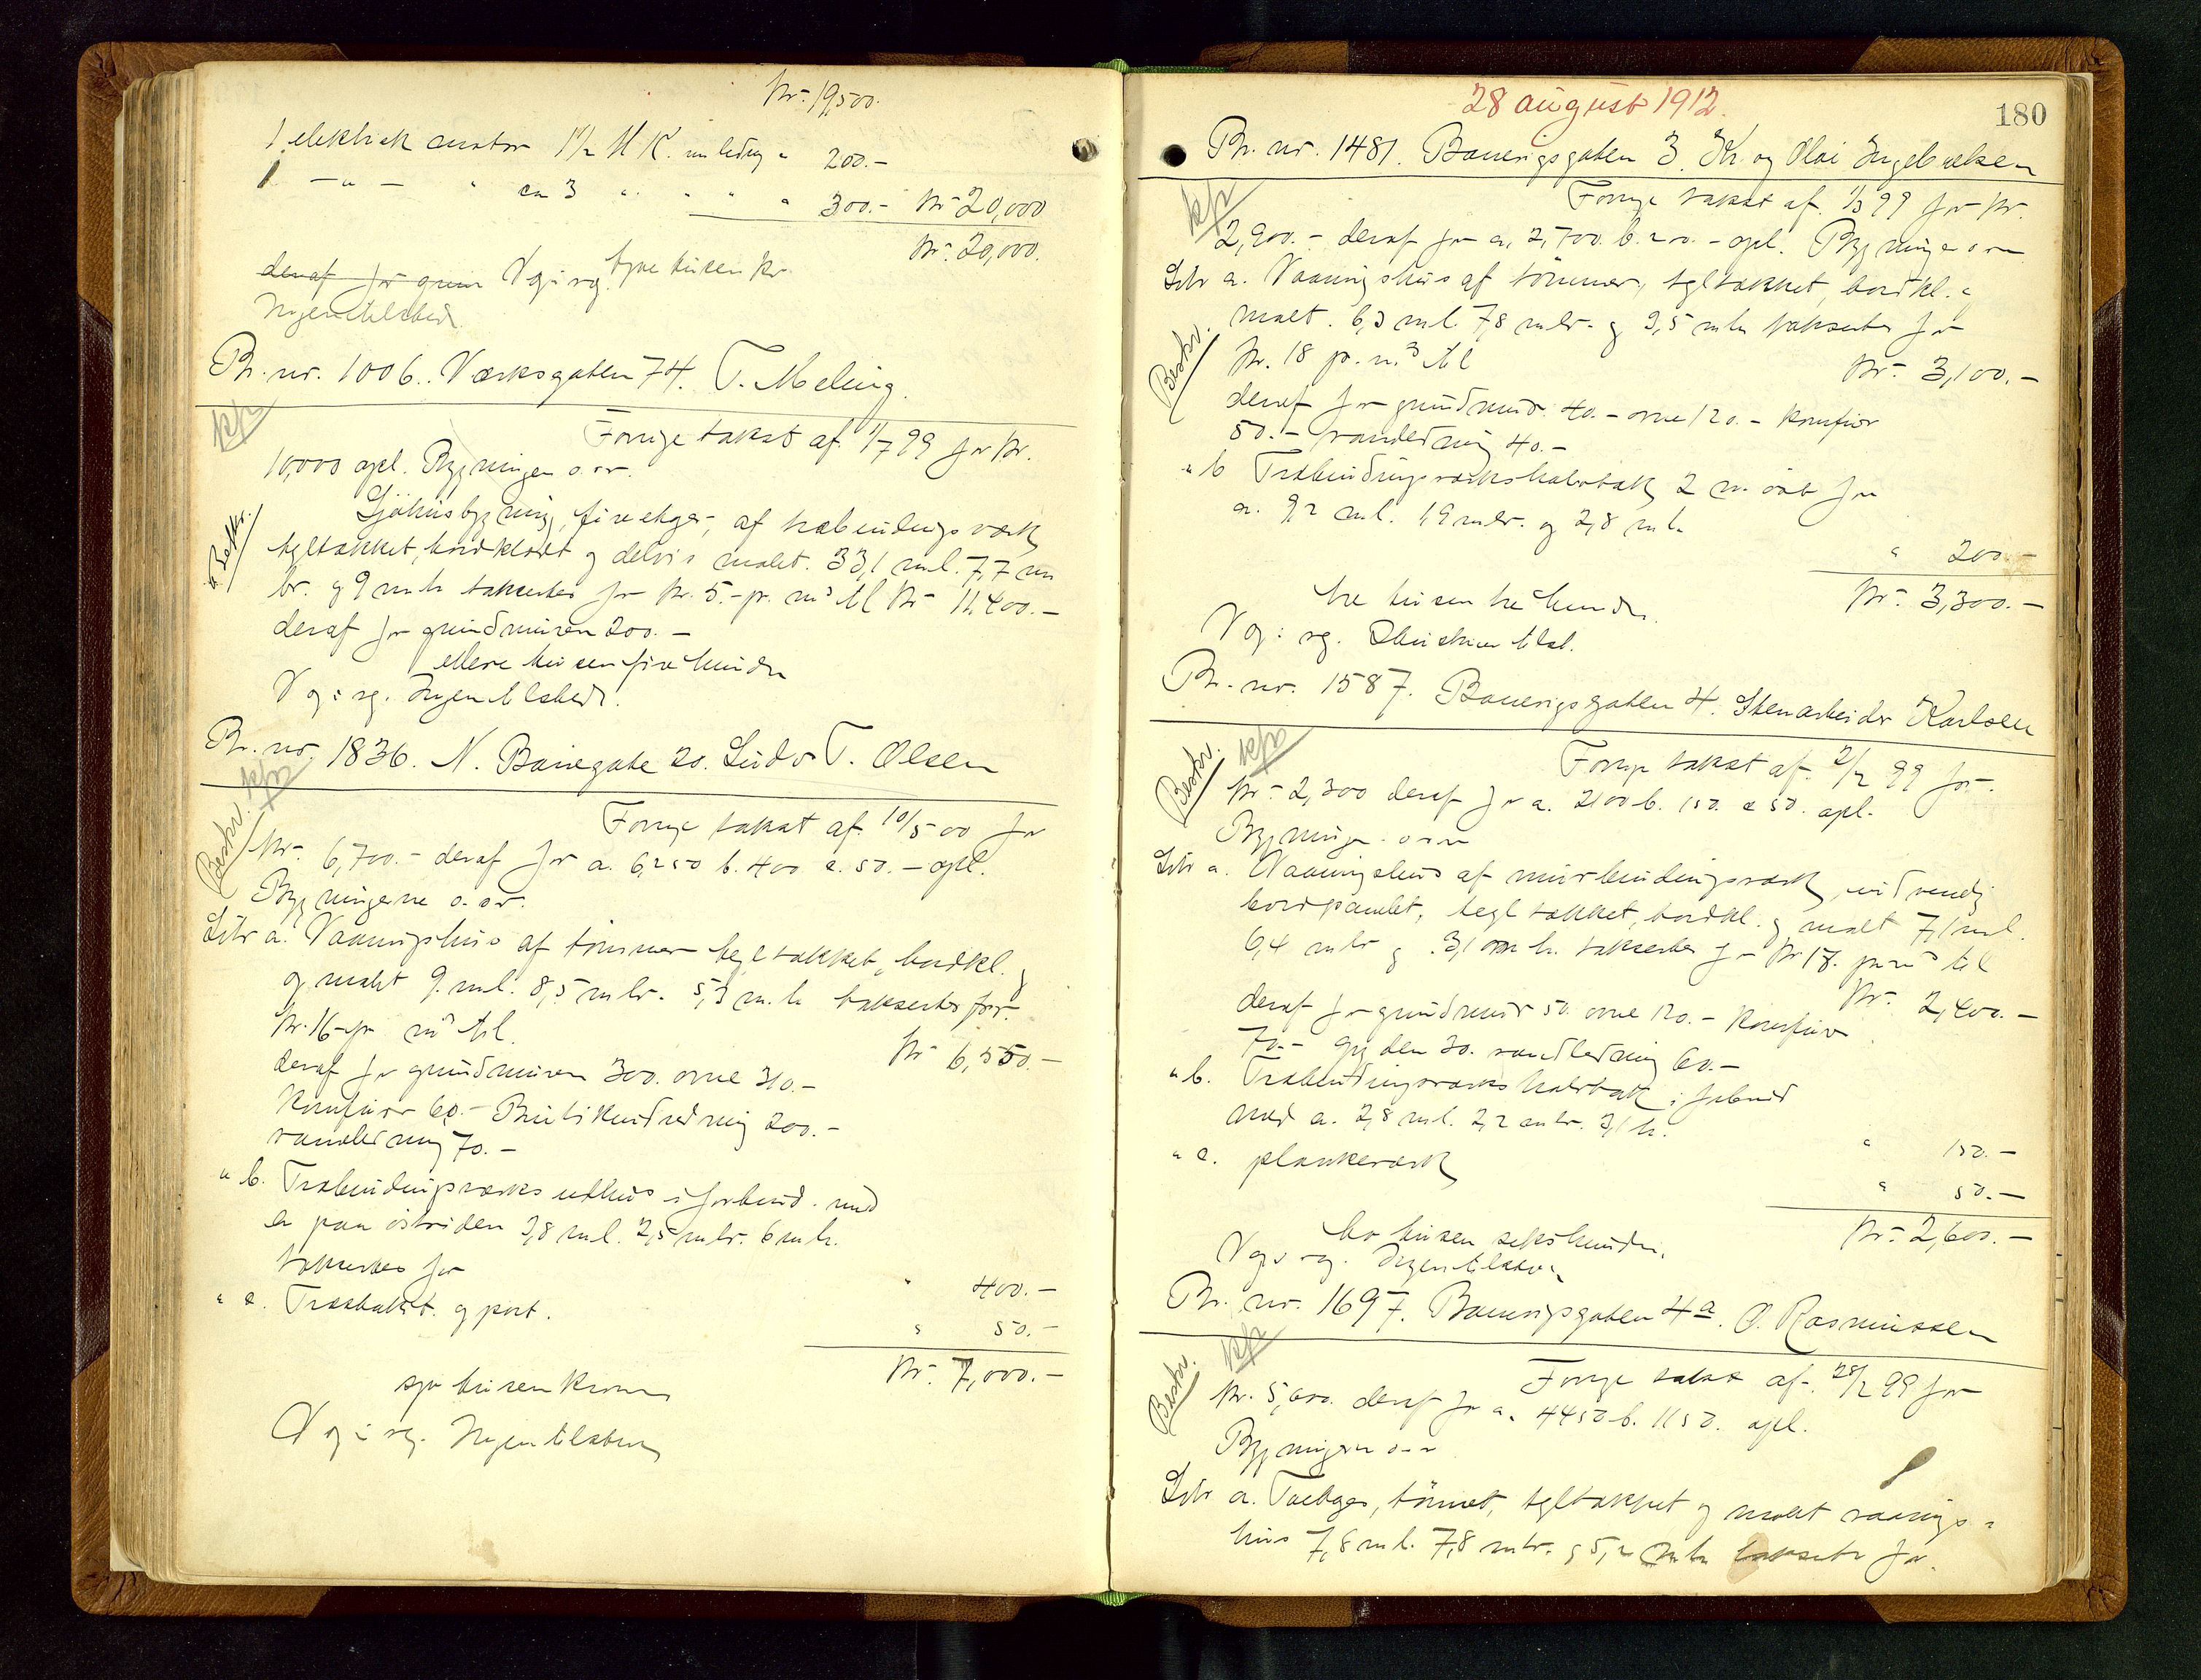 Kr. 19,500.
1 elektrisk motor 1 1/2 H K. m ledng " 200.-
1 -"- " ca 3 " " " " 300.- Kr 20,000
Kr. 20,000.
deraf for grun V gi rg. tyve tusen kr.
Ingen tilsted.
Br. nr. 1006. Værksgaten 74. T. Meling.
kfr
Forrige takst af 1/7 99 for Kr.
10,000 opl. Bygningen o.s.v.
Sjöhusbygning, fireetages, af træbindingsværk
tegltækket, bordklædt og delvis malet. 33,1 m.l. 7,7 m
br. og 9 m h takseres for Kr. 5.- pr. m³ til Kr 11,400.-
deraf for grundmuren 200.-
elleve tusen fire hundre
V g: rg. Ingen tilstede.
Br. nr. 1836. N. Banegate 20. Ludv T. Olsen
Beskr. kfr
Forrige takst af 10/5 00 for
Kr. 6,700.- deraf for a. 6250 b. 400 c. 50.- opl.
Bygningerne o.s.v.
Litr a. Vaaningshus af tömmer tegltækket, bordkl. og
og malt 9 m.l. 8,5 m br. 5,3 m. h takseres for
Kr. 16 pr m³ til.
Kr 6,550.-
deraf for grundmuren 300. ovne 310.-
Komfur 60.- Butikindredning 200.-
vandledning 70.-
" b. Træbindingsværks uthus i forbind. med
a paa östsiden 3,8 m l. 2,5 m br. 6 m h.
takseres for
" 400.-
" c. Træstakit. og port.
" 50.-
Kr. 7,000.-
syv tusen kroner
V g: rg. Ingen tilstede
28 august 1912.
180
Br. nr. 1481. Banevigsgaten 3. Kr. og Olai Ingebretsen
kfr
Forrige takst af. 1/3 99 for Kr.
2,900.- deraf for a, 2,700. b. 200.- opl. Bygninger o s v
Litr a. Vaaningshus af tömmer, tegltækket, bordkl. "
Beskr.
malt. 6,3 m.l. 7,8 m br. og 3,5 m h takseres for
Kr. 18 pr. m³ til
Kr. 3,100.-
deraf for grundmur 40.- ovne 120.- komfur
50.- vandledning 40.-
" b Træbindingsværkshalvtak 2 m. öst for
a. 9,2 m l. 1,9 m br. og 2,8 m h
" 200.-
Kr. 3,300.-
tre tusen tre hundre.
V g: rg.
Br. nr. 1587. Banevigsgaten 4. Stenarbeider Karlsen
Beskr. kfr
Forrige takst af. 2/2 99 for.
Kr. 2,300 deraf for a. 2100 b. 150. c 50. opl.
Bygninger o s v
Litr a. Vaaningshus af murbindingsværk, utvendig
bordpanelet, tegltækket, bordkl. og malt 7,1 m l.
6,4 m br og 3,1 m h. takseres for Kr 17. pr m³ til
Kr. 2,400.-
deraf for grundmur 50. ovne 120.- Komfur
70.- 30. vandledning 60.-
" b. Træbindingsværks halvtak i forbind
med a. 2,8 m l. 2,2 m br. 3,1 h.
" 150.-
" c. plankeværk
" 50.-
Kr. 2,600.-
to tusen sekshundre.
V g: rg. Ingen tilstede
Br. nr. 1697. Banevigsgaten 4a. O. Rasmussen
Beskr. kfr
Forrige takst af. 28/2 99 for
Kr. 5,600. deraf for a. 4450 b. 1150. opl.
Bygningen o s v
Litr a. Toetages, tömret, tegltækket og malt vaanings-
hus 7,8 m l. 7,8 m br. og 5,2 m h takseres for.